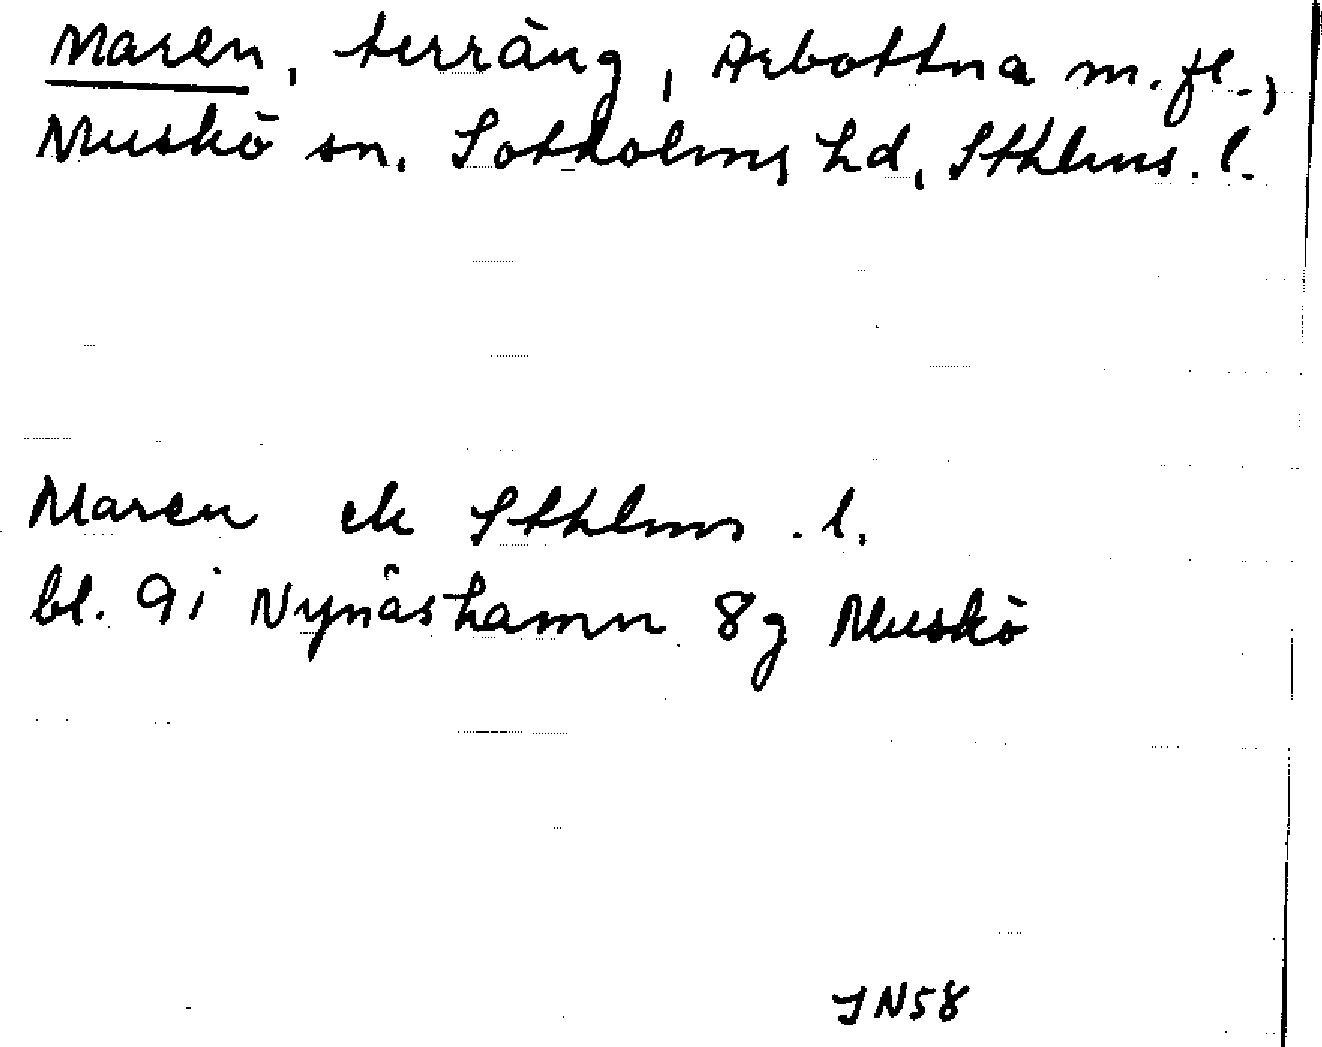 Maren, terräng, Arbottna m.fl.,
Muskö sn. Sotholms hd, Sthlms. l.
Maren ek Sthlms. l.
bl. 9i Nynäshamn 8g Muskö
JN58